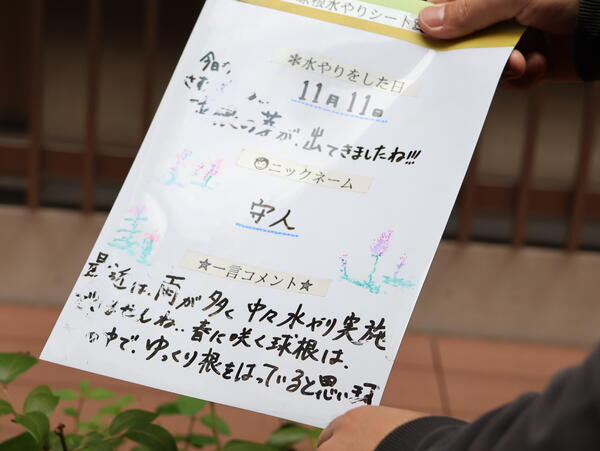 球根水やりシート
＊水やりをした日
今日
11月11日
芽が、出てきましたね!!!
ニックネーム
守人
★一言コメント★
最近は、雨が多く中々水やり実施
できませんね、春に咲く球根は、
中で、ゆっくり根をはっていると思い